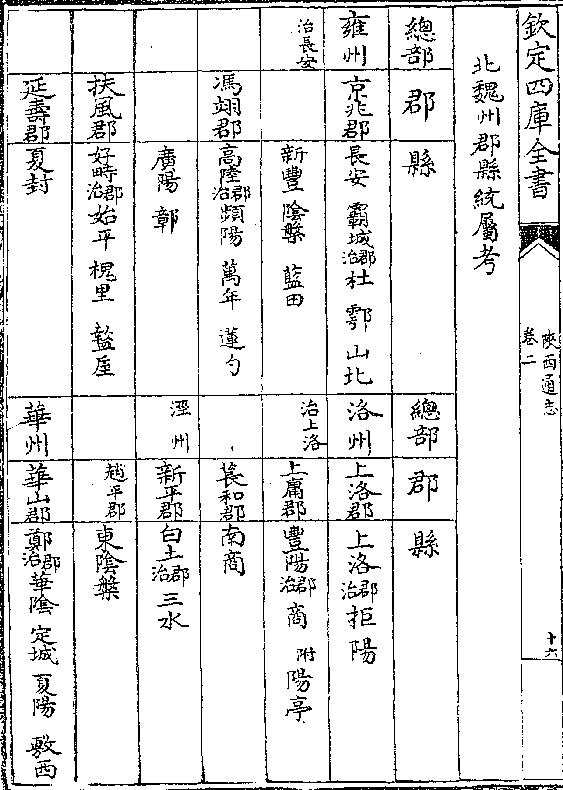 欽定四庫全書
陝西通志
卷二
十六
北魏州郡縣統屬考
總部 郡 縣 總部 郡 縣
雍州 京兆郡 長安 霸城郡治 杜 鄠 山北 洛州 上洛郡 上洛郡治 拒陽
治長安 新豐 陰槃 藍田 治上洛 上庸郡 豐陽郡治 商 附陽亭
馮翊郡 高陸郡治 頻陽 萬年 蓮勺 萇和郡 南商
廣陽 鄣 涇州 新平郡 白土郡治 三水
扶風郡 好畤郡治 始平 槐里 盩厔 趙平郡 東陰槃
延壽郡 夏封 華州 華山郡 鄭郡治 華陰 定城 夏陽 敷西